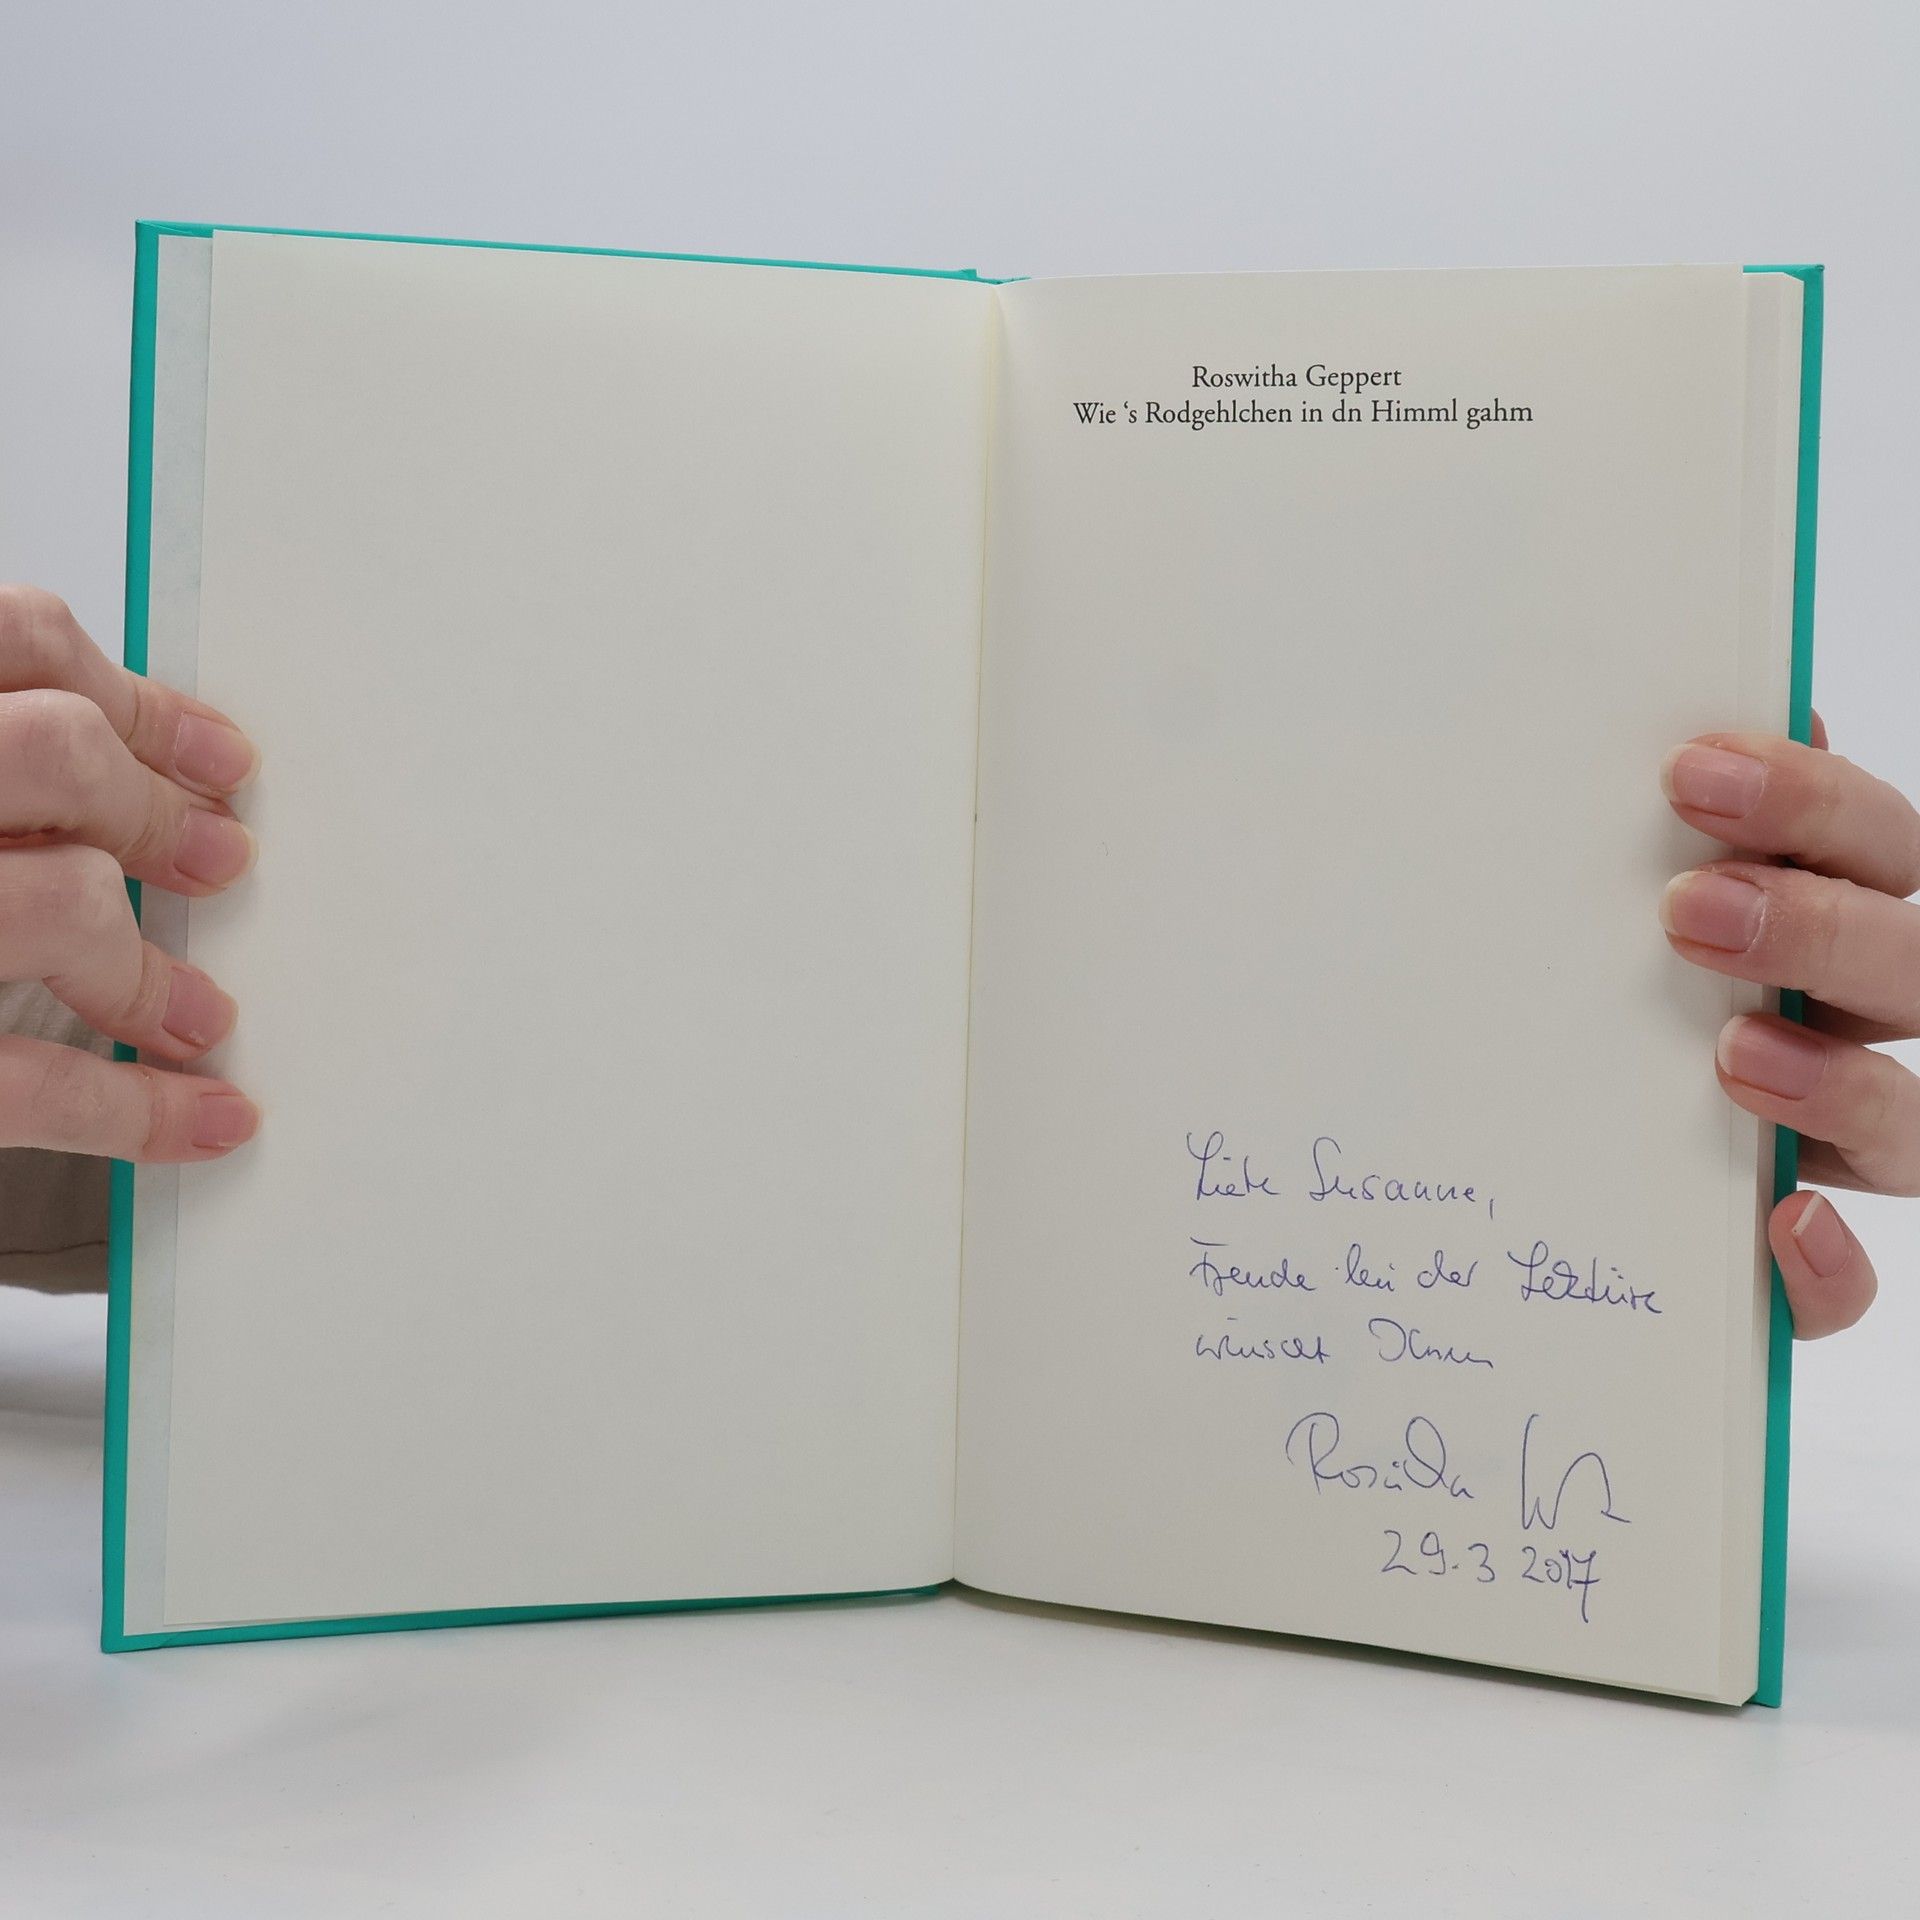 Roswitha Geppert
Wie ‘s Rodgehlchen in dn Himml gahm
Liebe Susanne,
Freude bei der Lektüre
wünscht Ihnen
Roswitha
29.3 2017